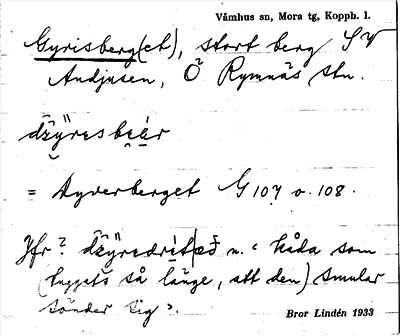 Våmhus sn, Mora tg, Koppb. l.
Gyrisberg(et), stort berg SV
Andjusen, Ö Rymnäs stn.
dz̈ÿresbeær
= Dyverberget G 107 o. 108.
Jfr ? n. "kåda som
(tuggats så länge, att den) smular
sönder sig".
Bror Lindén 1933